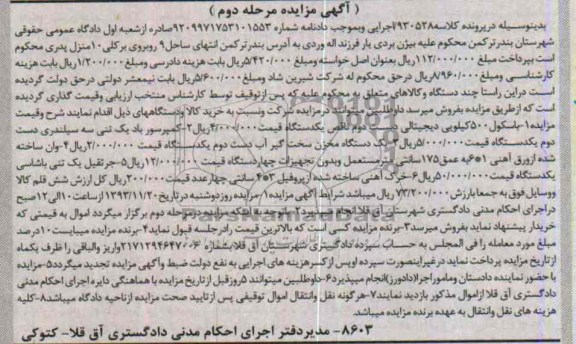 ( آگهی مزایده مرحله دوم )
بدینوسیله درپرونده کلاسه ۹۳۰۵۲۸ اجرایی وبموجب دادنامه شماره ۹۲۰۹۹۷۱۷۵۳۱۰۱۵۵۳ صادره ازشعبه اول دادگاه عمومی حقوقی
شهرستان بندرترکمن محکوم علیه بیژن یزدی یار فرزند اله وردی به آدرس بندرترکمن انتهای ساحل ۹ روبروی برکلی ۱۰ منزل پدری محکوم
است بپرداخت مبلغ ۱۱۲/۰۰۰/۰۰۰ ریال بعنوان اصل خواسته ومبلغ ۵/۴۲۰/۰۰۰ ریال بابت هزینه دادرسی ومبلغ ۱/۲۰۰/۰۰۰ ریال بابت هزینه
کارشناسی ومبلغ ۸/۹۶۰/۰۰۰ ریال درحق محکوم له شرکت شیرین شاد ومبلغ ۵/۶۰۰/۰۰۰ ریال بابت نیمعشر دولتی درحق دولت گردیده
است دراین راستا چند دستگاه وکالاهای متعلق به محکوم علیه که پس ازتوقیف توسط کارشناس منتخب ارزیابی وقیمت گذاری گردیده
است که ازطریق مزایده بفروش میرسد داوطلبین درمزایده شرکت ونسبت به خرید کالا ودستگاههای ذیل اقدام نمایند شرح وقیمت
مزایده ۱-باسکول ۵۰۰ کیلویی دیجیتالی دوم ناقص یکدستگاه قیمت ۴/۰۰۰/۰۰۰ ریال ۲-کمپرسور باد یک تنی سه سیلندری دست
دوم یکدستگاه قیمت ۵/۰۰۰/۰۰۰ ریال ۳-یک دستگاه مخزن سخت گیر آب دست دوم یکدستگاه قیمت ۲/۰۰۰/۰۰۰ ریال ۴-وان ساخته
شده ازورق آهنی ۱*۶ به عمق ۱۷۵ سانتی متر مستعمل وبدون تجهیزات چهاردستگاه قیمت ۱۲/۰۰۰/۰۰۰ ریال ۵-جرثقیل یک تنی باشاسی
یکدستگاه قیمت ۵۰/۰۰۰/۰۰۰ ریال ۶-خرک آهنی ساخته شده ازپروفیل ۳*۴ سانتی چهارعدد قیمت ۲۰۰/۰۰۰ ریال کل ارزش شش قلم کالا
ووسایل فوق به جمعا بارزش ۷۳/۲۰۰/۰۰۰ ریال میباشد شرایط آگهی مزایده ۱-مزایده روز دوشنبه درتاریخ ۱۳۹۳/۱۱/۲۰ ازساعت ۱۰ الی ۱۲ صبح
دراجرای احکام مدنی دادگستری شهرستان آق قلا برگزار میگردد ۲- مزایده مرحله دوم برگزار میگردد اموال به قیمتی که
خریدار پیشنهاد نماید بفروش میرسد ۳-برنده مزایده کسی است که بالاترین قیمت رادرجلسه فروش قبول نماید ۴-برنده مزایده میبایست ۱۰ درصد
مبلغ مورد معامله را فی المجلس به حساب سپرده دادگستری شهرستان آق قلا بشماره ۲۱۷۱۲۹۴۶۴۷۰۰۶ واریز والباقی را ظرف یکماه
ازتاریخ مزایده پرداخت نماید درغیراینصورت سپرده اوپس ازکسرهزینه های اجرایی به نفع دولت ضبط وآگهی مزایده تجدید میگردد ۵-مزایده
با حضور نماینده دادستان وماموراجرا(دادورز)انجام میپذیرد ۶-داوطلبین میتوانند ۵ روزقبل ازتاریخ مزایده با هماهنگی دایره اجرای احکام مدنی
دادگستری آق قلا ازاموال مذکور بازدید نمایند ۷-هرگونه نقل وانتقال اموال توقیفی پس ازتایید صحت مزایده ازناحیه دادگاه میباشد ۸-کلیه
هزینه های نقل وانتقال به عهده برنده مزایده میباشد.
۸۶۰۳- مدیردفتر اجرای احکام مدنی دادگستری آق قلا- کتوکی